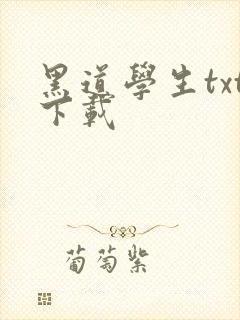 黑道學生txt
下載
葡萄紫